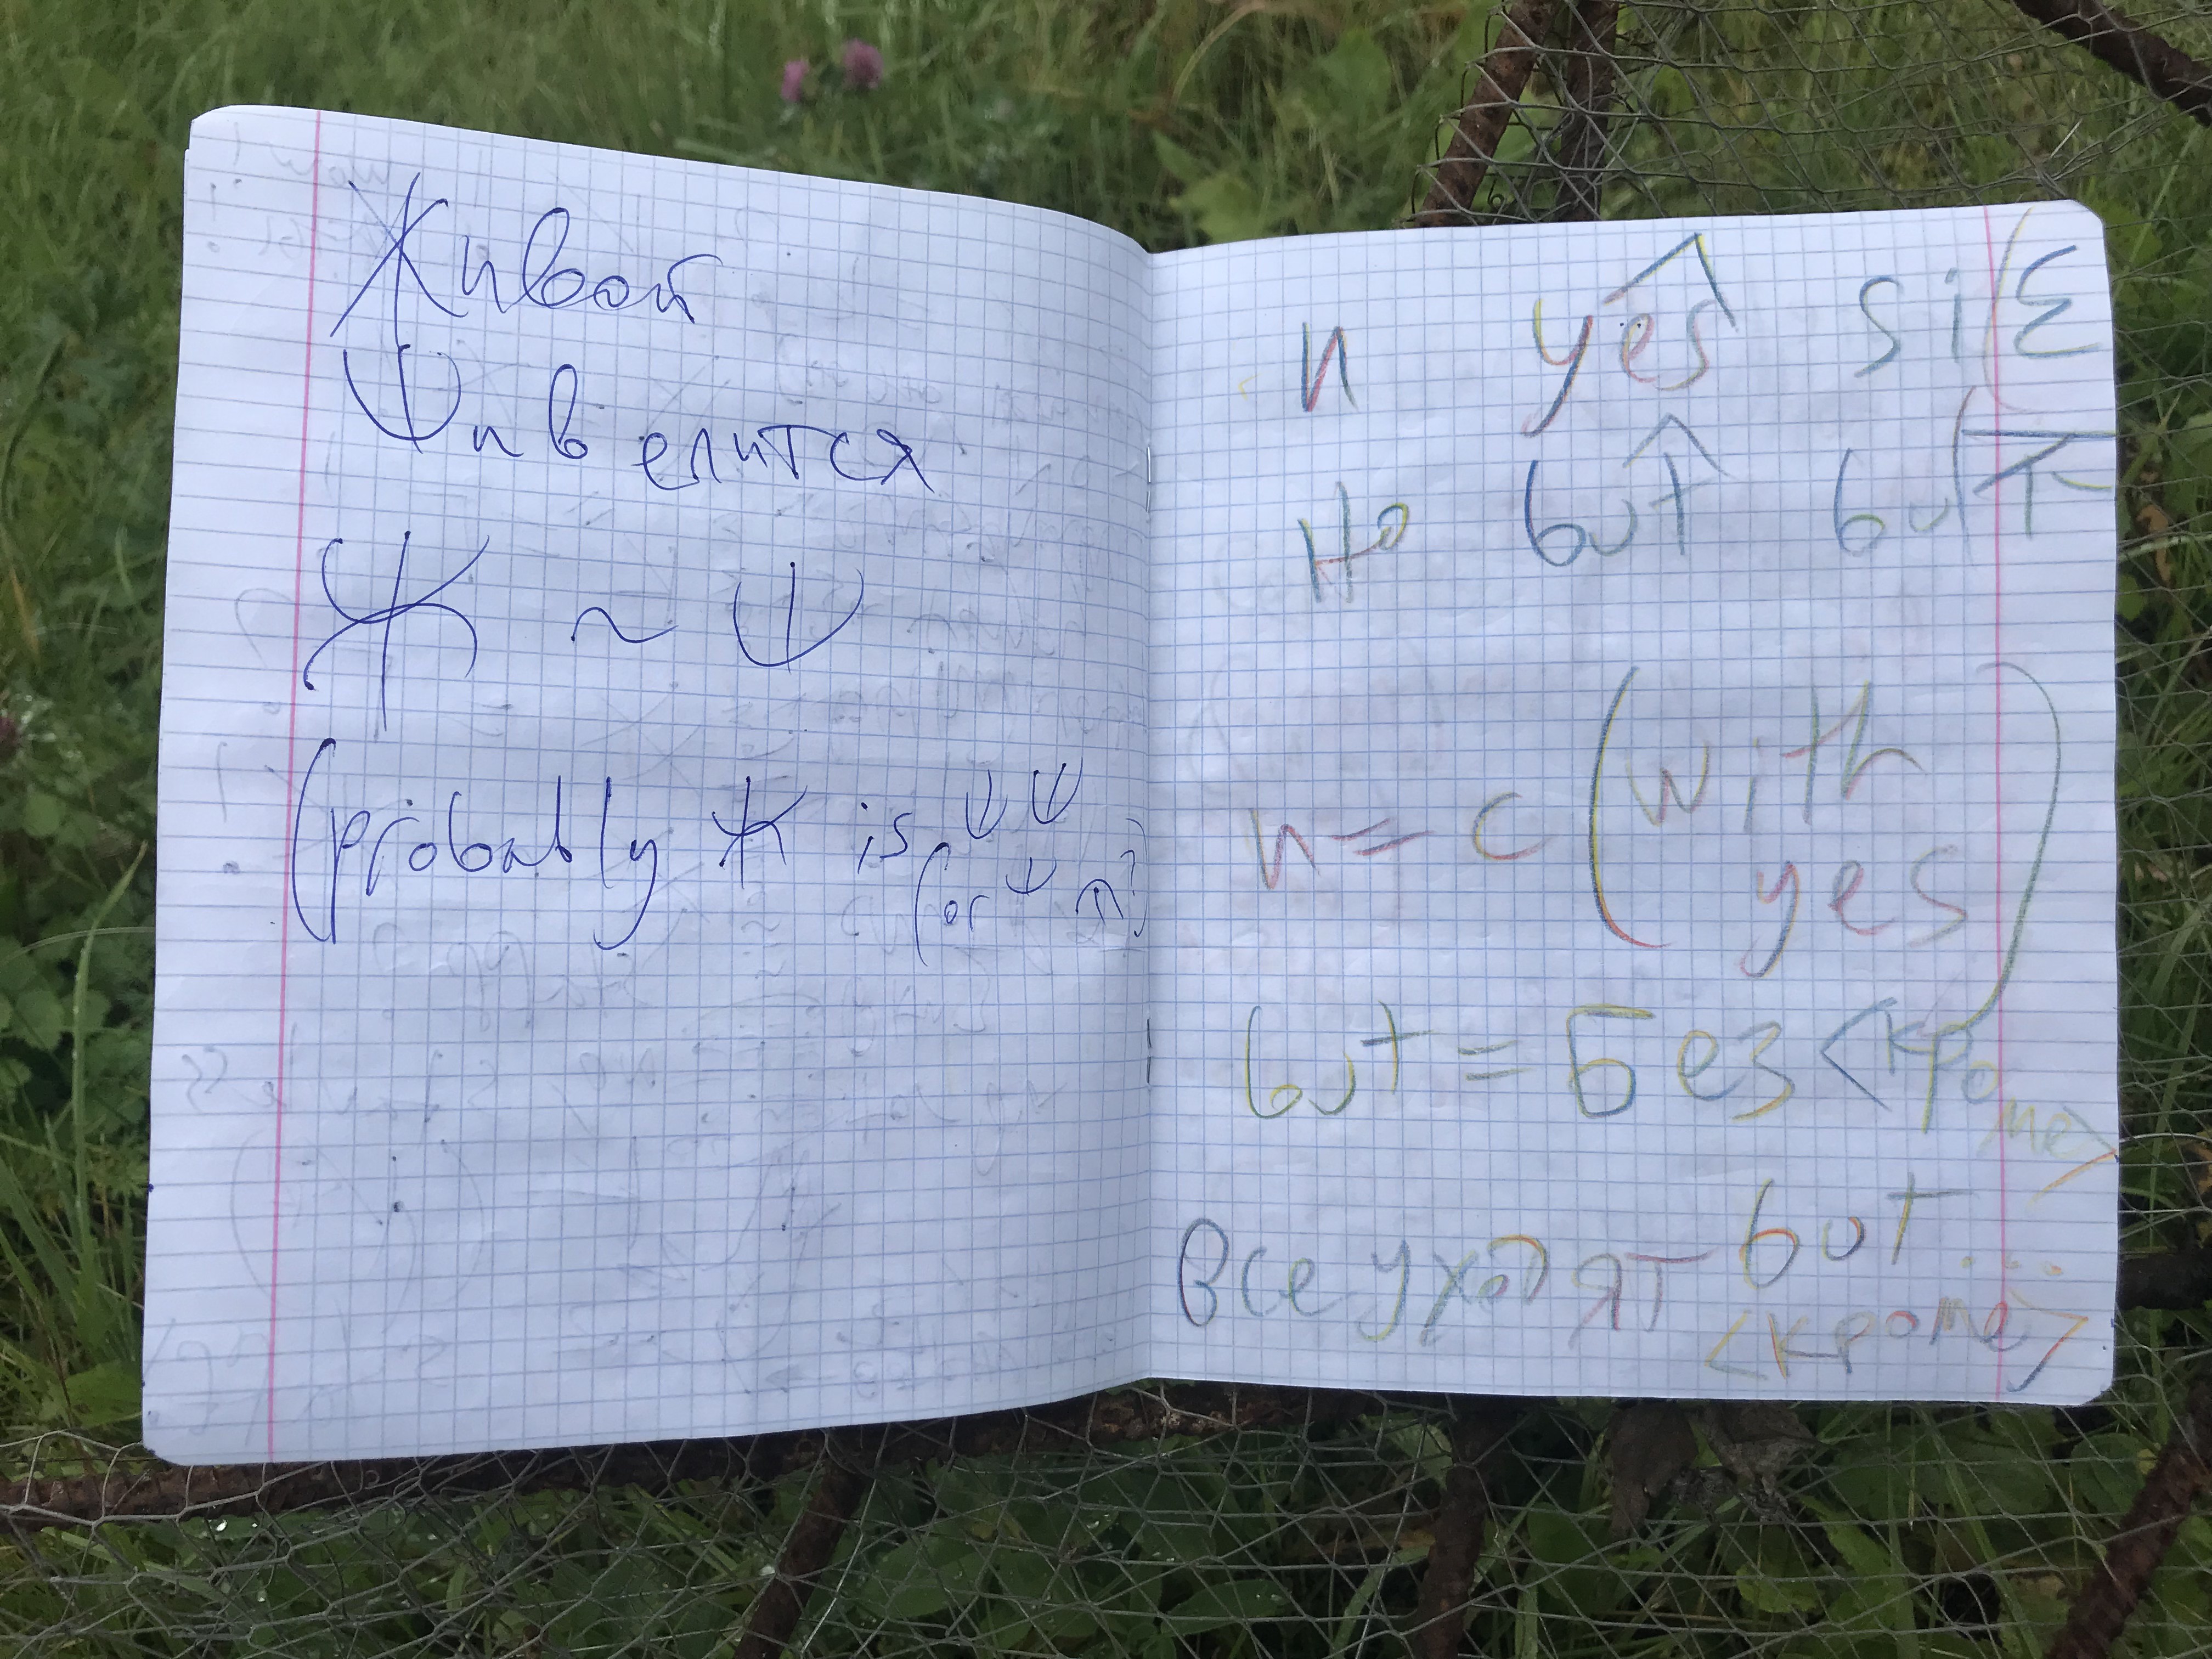 Живой
Шивелится
Ж ~ Ш
(probably Ж is ψ ψ
(or ψ ⋔?)
и yes si (Σ
но but but
и = с (with
yes)
but = Без <кроме>
все уходят but...
<кроме>